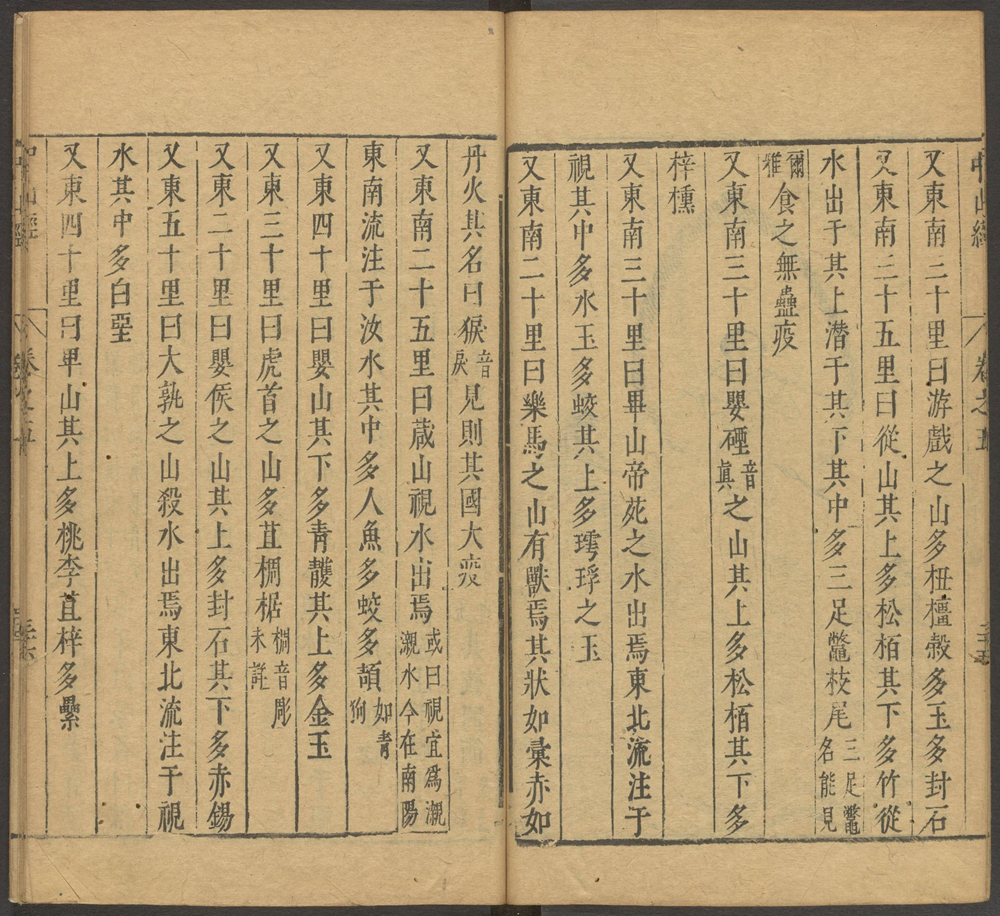 中山經 卷之五
又東南二十里曰游戲之山多杻橿榖多玉多封石
又東南三十五里曰從山其上多松栢其下多竹從
水出于其上潜于其下其中多三足鼈枝尾三足鼈名能見
爾雅食之無蠱疫
又東南三十里曰嬰䃌音真之山其上多松栢其下多
梓櫄
又東南三十里曰畢山帝苑之水出焉東北流注于
視其中多水玉多蛟其上多㻬琈之玉
又東南二十里曰樂馬之山有獸焉其狀如彙赤如
丹火其名曰㹎音戾見則其國大疫
又東南二十五里曰葴山視水出焉或曰視宜為瀙瀙水今在南陽
東南流注于汝水其中多人魚多蛟多頡如青狗
又東四十里曰嬰山其下多青雘其上多金玉
又東三十里曰虎首之山多苴椆椐椆音彫未詳
又東二十里曰嬰侯之山其上多封石其下多赤錫
又東五十里曰大孰之山殺水出焉東北流注于視
水其中多白堊
又東四十里曰卑山其上多桃李苴梓多纍